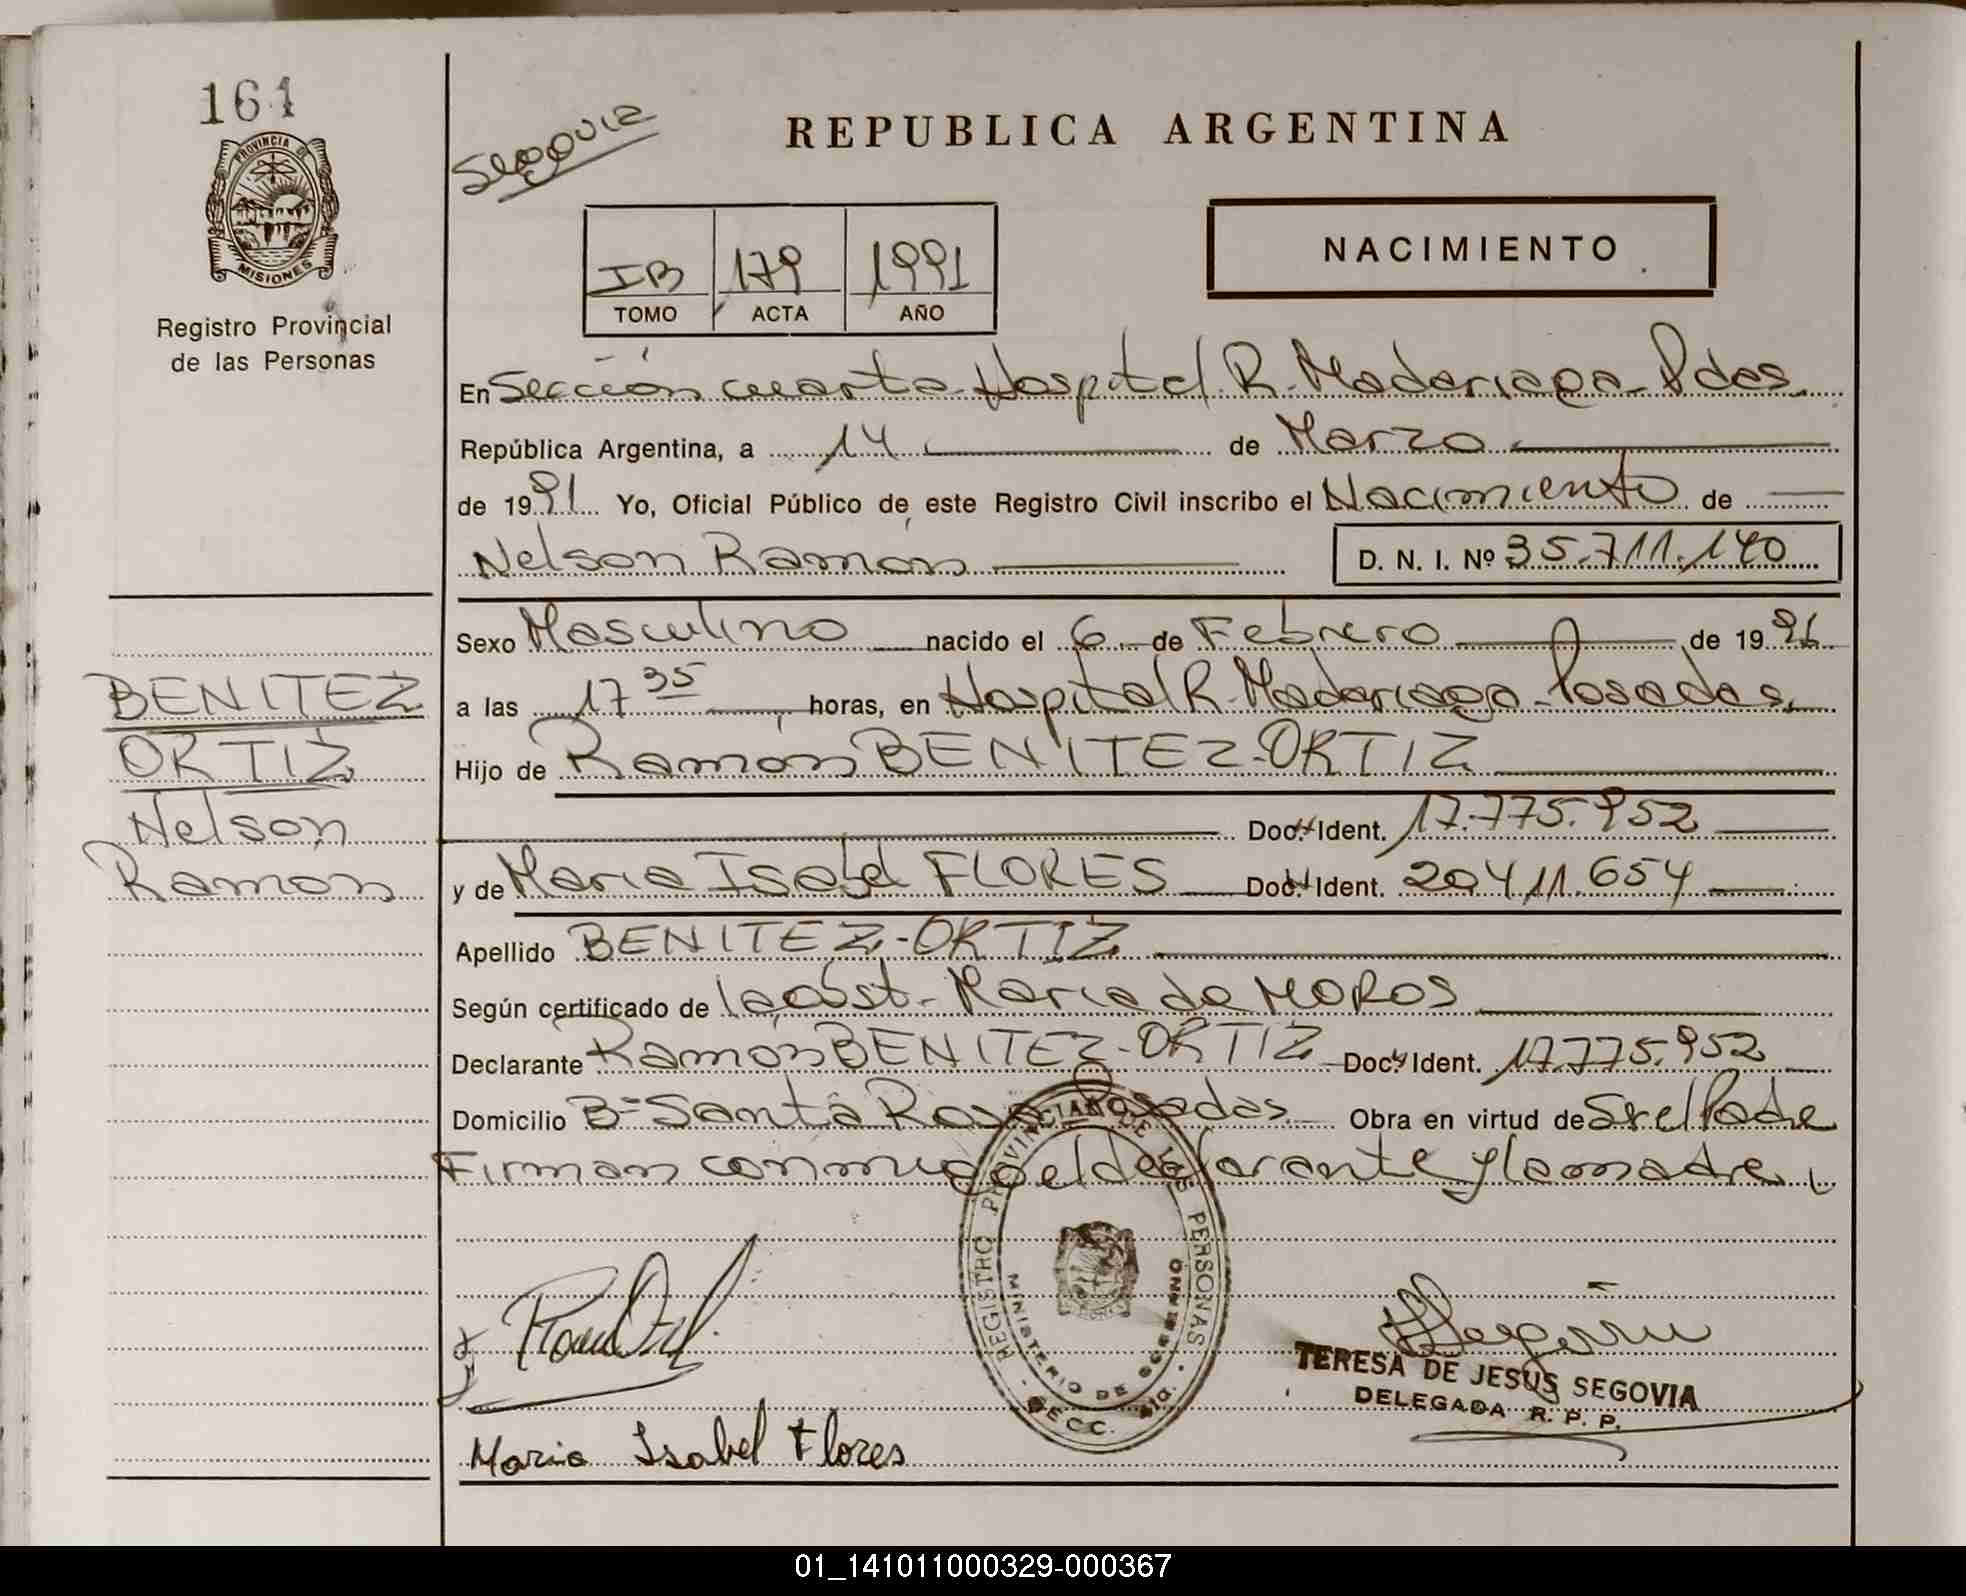 161
Segovia
REPUBLICA ARGENTINA
PROVINCIA DE
MISIONES
Registro Provincial
de las Personas
IB 179 1991
TOMO ACTA AÑO
NACIMIENTO
En Sección cuarta Hospital R. Madariaga - Pdas.
República Argentina, a 14 de Marzo
de 1991 Yo, Oficial Público de este Registro Civil inscribo el Nacimiento de
Nelson Ramón
D. N. I. Nº 35.711.140
Sexo Masculino nacido el 6 de Febrero de 1991
a las 17 35 horas, en Hospital R. Madariaga - Posadas.
Hijo de Ramón BENITEZ-ORTIZ
Doc. Ident. 17.775.952
y de Maria Isabel FLORES Doc. Ident. 20411.654
Apellido BENITEZ-ORTIZ
Según certificado de la obst. Maria da MOROS
Declarante Ramón BENITEZ-ORTIZ Doc. Ident. 17.775.952
Domicilio Bº Santa Rosa Posadas. Obra en virtud de Ser el Padre
Firman conmigo el declarante y la madre
BENITEZ
ORTIZ
Nelson
Ramón
REGISTRO PROVINCIAL DE LAS PERSONAS
MINISTERIO DE GOBIERNO
SECC.
TERESA DE JESUS SEGOVIA
DELEGADA R. P. P.
Maria Isabel Flores
01_141011000329-000367